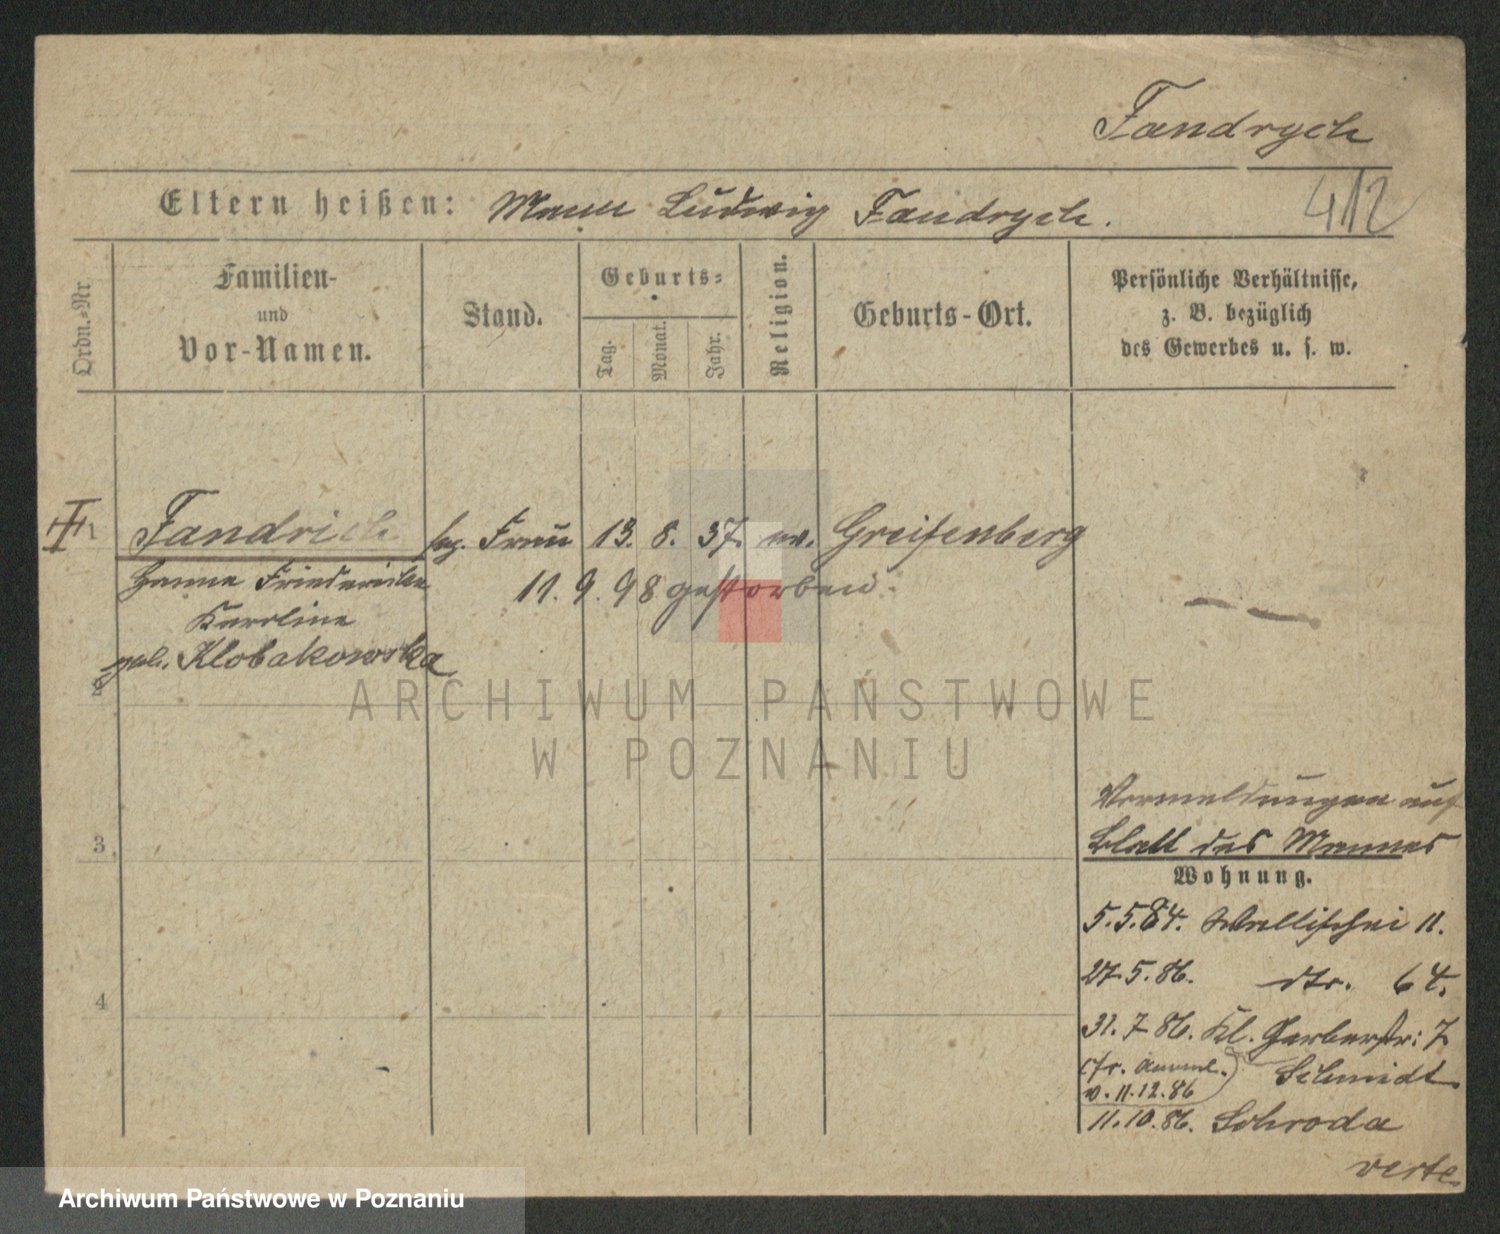 Fandrych
412
Eltern heißen: Mann Ludwig Fandrych.
Ordn.-Nr
Familien-
und
Vor-Namen.
Stand.
Geburts-
Tag.
Monat.
Jahr.
Religion.
Geburts-Ort.
Persönliche Verhältnisse,
z. B. bezüglich
des Gewerbes u. s. w.
Fandrich Frau 13. 8. 37. ev. Greifenberg
Hanne Friederike 11. 9. 98 gestorben.
Karoline
geb. Klobakowska
2
ARCHIWUM PAŃSTWOWE
W POZNANIU
3
4
Vermeldungen auf
Blatt des Mannes
Wohnung.
5.5.84. Wallischei 11.
27.5.86. dto. 64.
31.7.86. Kl. Gerberstr: 7
Schmidt
v. 11.12.86
11.10.86. Schroda
verte.
Archiwum Państwowe w Poznaniu